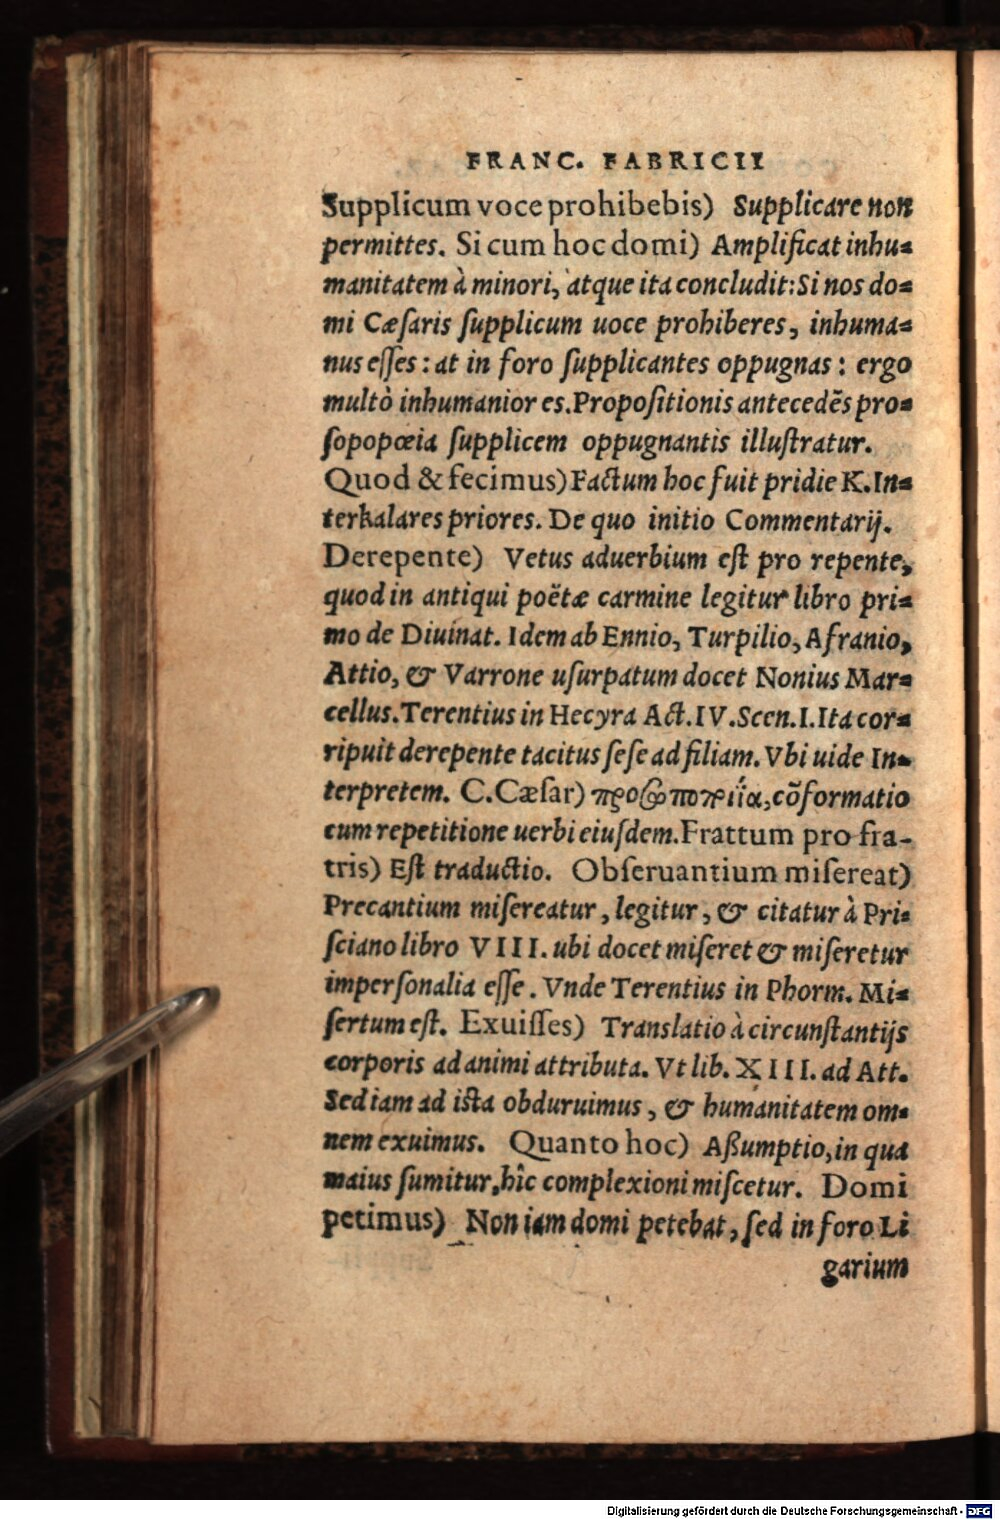 FRANC. FABRICII
Supplicum voce prohibebis) Supplicare non
permittes. Si cum hoc domi) Amplificat inhu⸗
manitatem à minori, atque ita concludit: Si nos do⸗
mi Cæſaris ſupplicum uoce prohiberes, inhuma⸗
nus eſſes: at in foro ſupplicantes oppugnas: ergo
multò inhumanior es. Propoſitionis antecedẽs pro⸗
ſopopœia ſupplicem oppugnantis illuſtratur.
Quod & fecimus) Factum hoc fuit pridie K. In⸗
terkalares priores. De quo initio Commentarij.
Derepente) Vetus aduerbium eſt pro repente,
quod in antiqui poëtæ carmine legitur libro pri⸗
mo de Diuinat. Idem ab Ennio, Turpilio, Afranio,
Attio, & Varrone uſurpatum docet Nonius Mar⸗
cellus. Terentius in Hecyra Act. IV. Scen. I. Ita cor⸗
ripuit derepente tacitus ſeſe ad filiam. Vbi uide In⸗
terpretem. C. Cæſar) προσωποποιΐα, cõformatio
cum repetitione uerbi eiuſdem. Frattum pro fra-
tris) Eſt traductio. Obſeruantium miſereat)
Precantium miſereatur, legitur, & citatur à Pri⸗
ſciano libro VIII. ubi docet miſeret & miſeretur
imperſonalia eſſe. Vnde Terentius in Phorm. Mi⸗
ſertum eſt. Exuiſſes) Translatio à circunſtantijs
corporis ad animi attributa. Vt lib. XIII. ad Att.
Sed iam ad iſta obduruimus, & humanitatem om⸗
nem exuimus. Quanto hoc) Aßumptio, in qua
maius ſumitur, hîc complexioni miſcetur. Domi
petimus) Non iam domi petebat, ſed in foro Li
garium
Digitalisierung gefördert durch die Deutsche Forschungsgemeinschaft - DFG